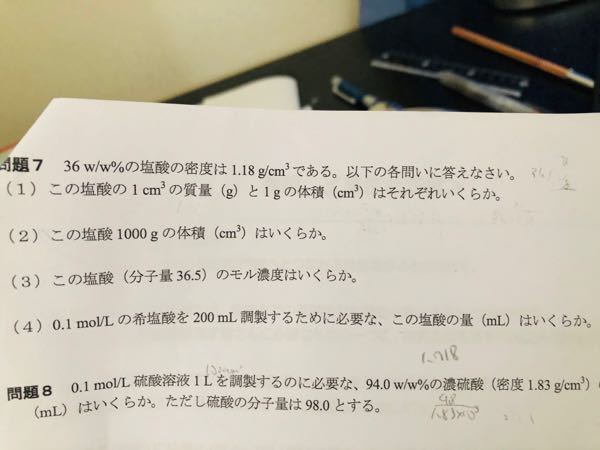 問題7 36 w/w%の塩酸の密度は1.18 g/cm³である。以下の各問いに答えなさい。
(1) この塩酸の1 cm³の質量（g）と1 gの体積（cm³）はそれぞれいくらか。
(2) この塩酸1000 gの体積（cm³）はいくらか。
(3) この塩酸（分子量36.5）のモル濃度はいくらか。
(4) 0.1 mol/Lの希塩酸を200 mL調製するために必要な、この塩酸の量（mL）はいくらか。
問題8 0.1 mol/L硫酸溶液1 Lを調製するのに必要な、94.0 w/w%の濃硫酸（密度1.83 g/cm³）
（mL）はいくらか。ただし硫酸の分子量は98.0とする。